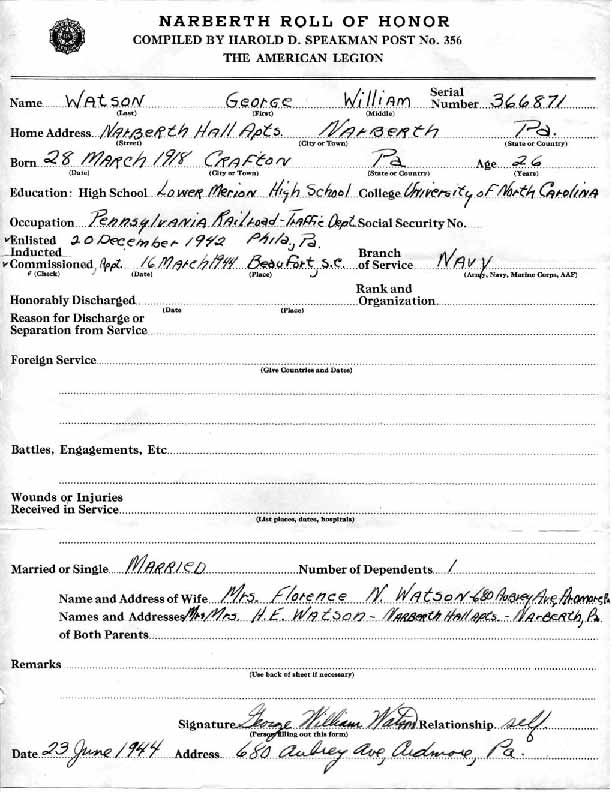 NARBERTH ROLL OF HONOR
COMPILED BY HAROLD D. SPEAKMAN POST No. 356
THE AMERICAN LEGION
Name WATSON George William Serial Number 366871
(Last) (First) (Middle)
Home Address NARBERTH Hall Apts. NARBERTH Pa.
(Street) (City or Town) (State or Country)
Born 28 MARCH 1918 CRAFTON Pa Age 26
(Date) (City or Town) (State or Country) (Years)
Education: High School Lower Merion High School College University of North Carolina
Occupation Pennsylvania Railroad-Traffic Dept. Social Security No.
✓Enlisted 20 December 1942 Phila, Pa.
Inducted
✓Commissioned, Appt. 16 March 1944 Beaufort, S.C. Branch of Service NAVY
# (Check) (Date) (Place) (Army, Navy, Marine Corps, AAF)
Honorably Discharged Rank and Organization
(Date (Place)
Reason for Discharge or
Separation from Service
Foreign Service
(Give Countries and Dates)
Battles, Engagements, Etc.
Wounds or Injuries
Received in Service
(List places, dates, hospitals)
Married or Single MARRIED Number of Dependents 1
Name and Address of Wife Mrs. Florence N. WATSON-680 Aubrey Ave, Ardmore, Pa
Names and Addresses Mrs. H.E. WATSON - NARBERTH Hall Apts. - NARBERTH, Pa
of Both Parents
Remarks
(Use back of sheet if necessary)
Signature George William Watson Relationship self
(Person filling out this form)
Date 23 June 1944 Address 680 Aubrey Ave, Ardmore, Pa.